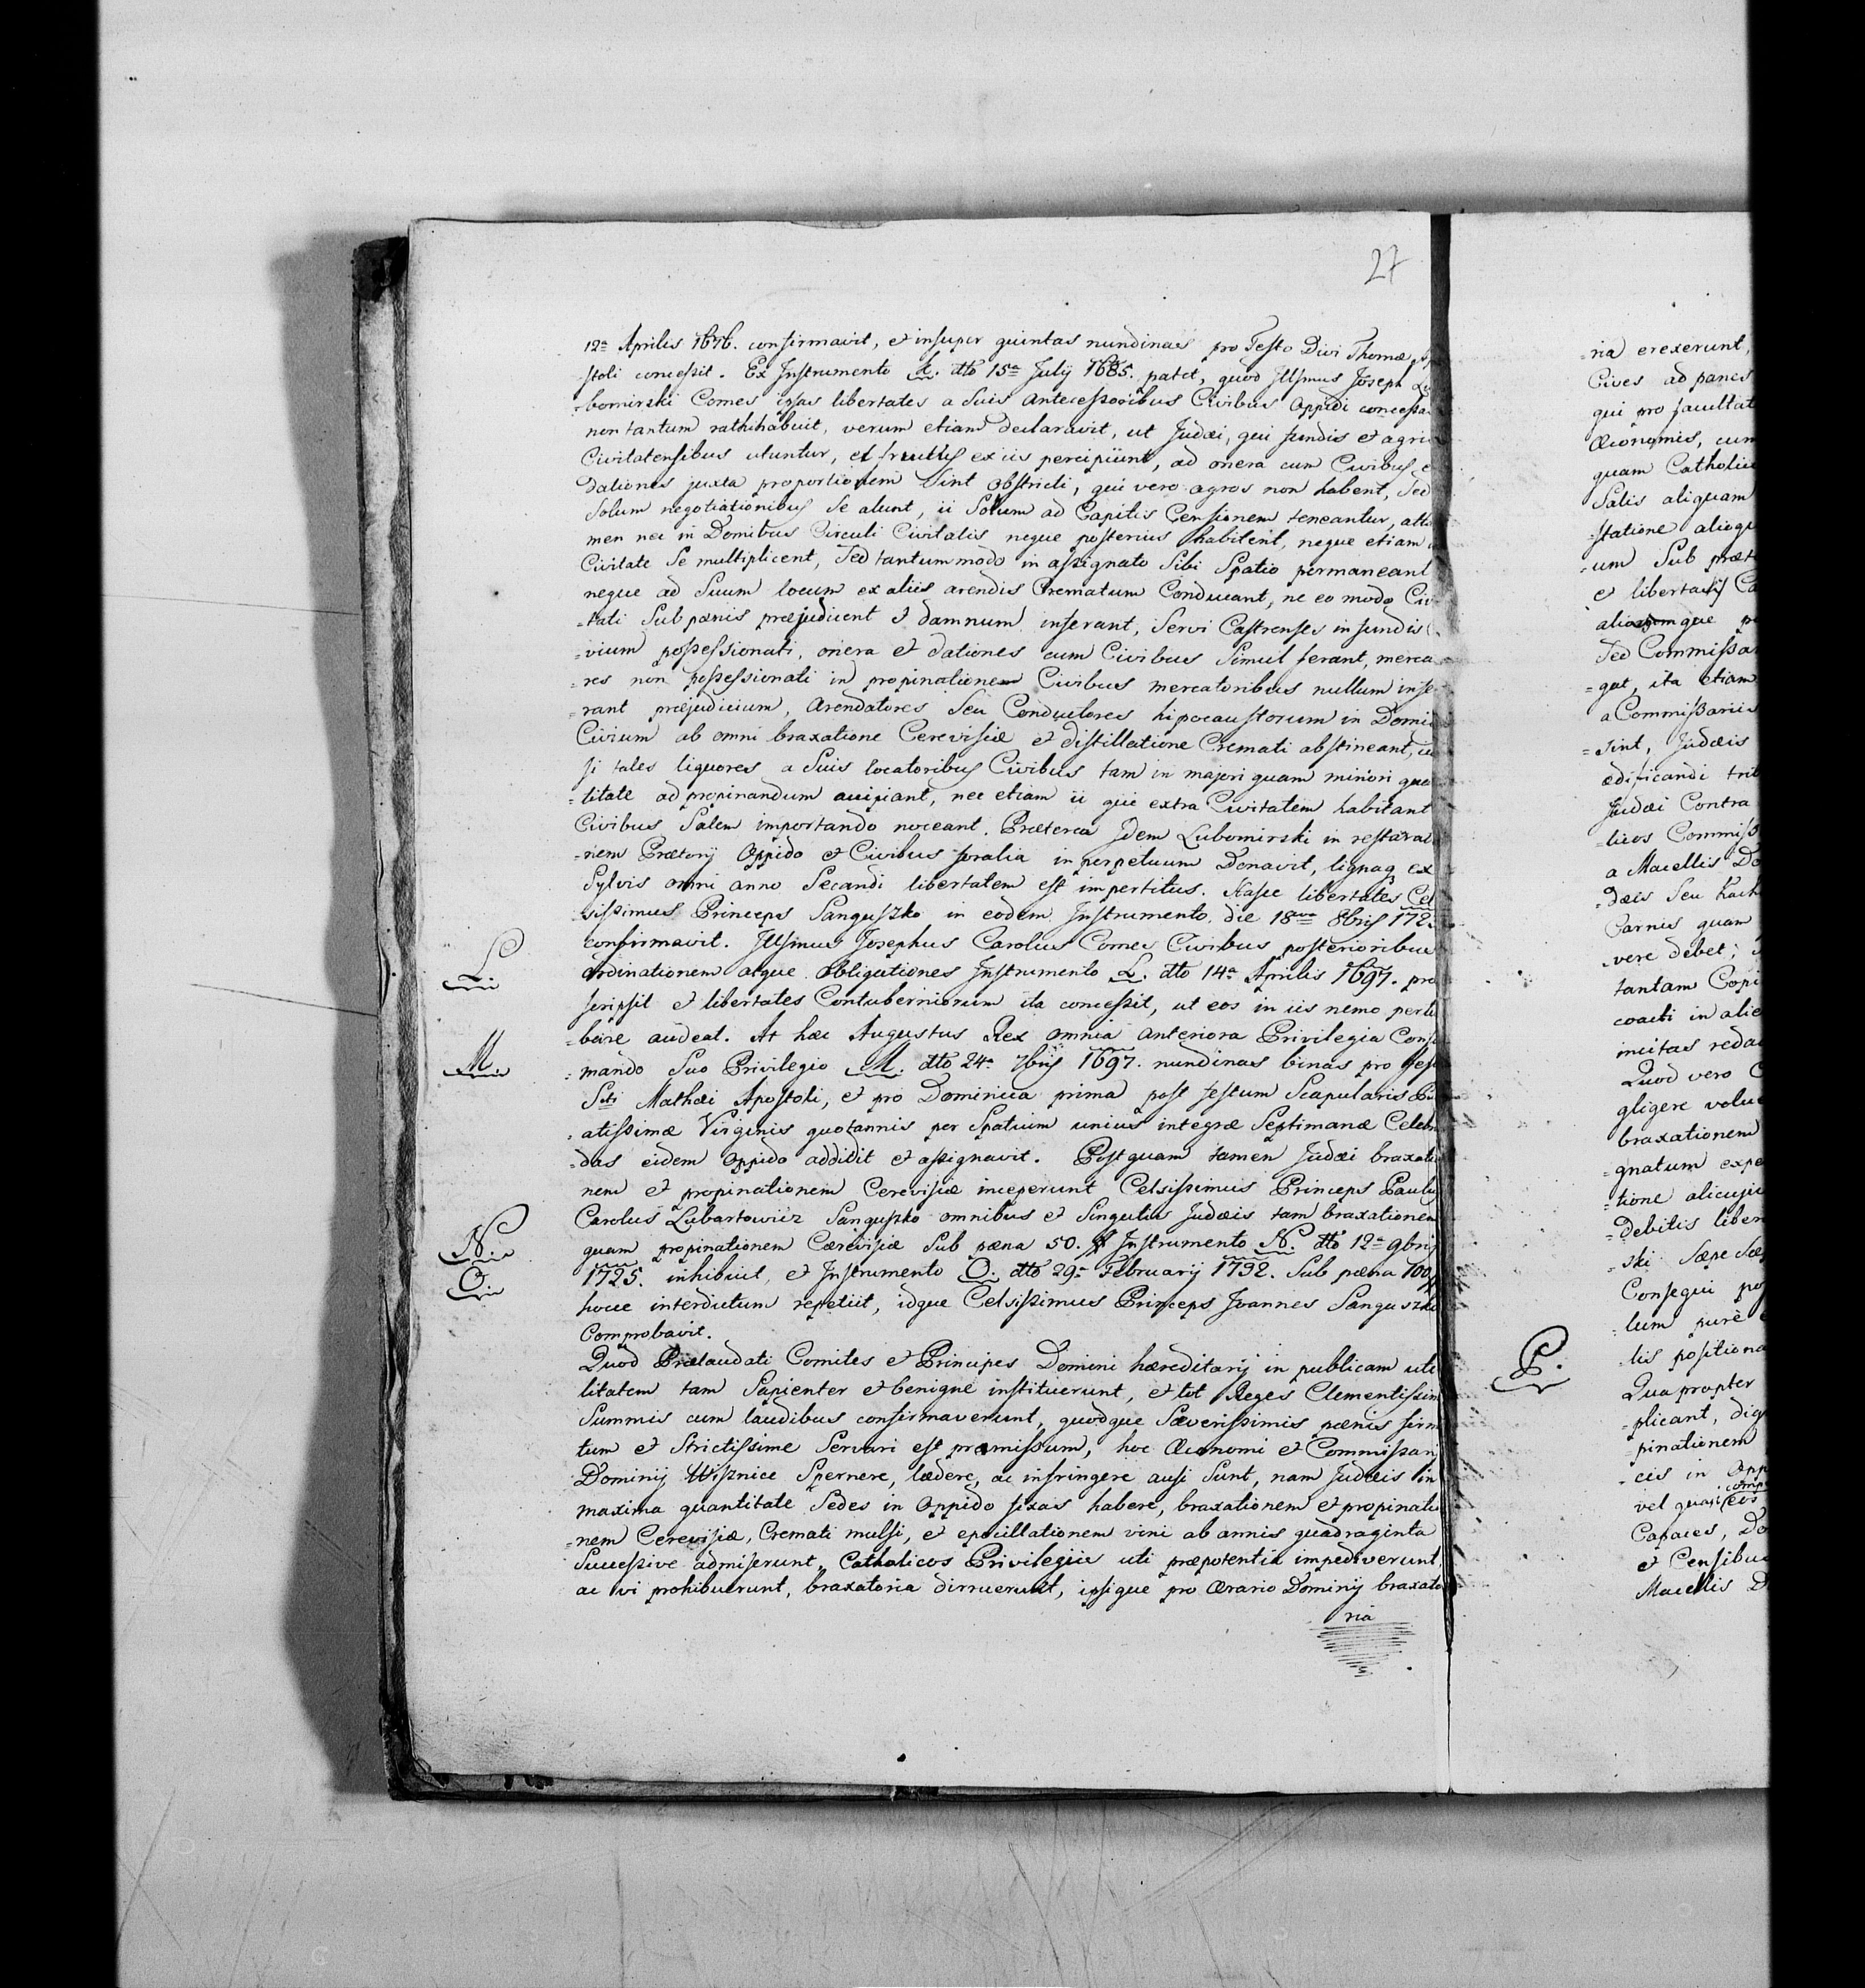 27
12a Aprilis 1676. confirmavit, et insuper quintas nundinas pro Festo Divi Thomæ
-stoli concessit. Ex Instrumento K. dtto 15a July 1685. patet, quod Illsmus Joseph Lu
-bomirski Comes ipsas libertates a Suis Antecessoribus Civibus Oppidi concessa
non tantum rathihabuit, verum etiam declaravit, ut Judæi, qui fundis et agri
Civitatensibus utuntur, et fructus ex iis percipiunt, ad onera cum Civibus e
dationes juxta proportionem Sint obstricti, qui vero agros non habent, Sed
Solum negotiationibus Se alunt, ii Solum ad Capitis Censionem teneantur, atta
men nec in Domibus Circuli Civitatis neque posterius habitent, neque etiam
Civitate Se multiplicent, Sed tantummodo in assignato Sibi Spatio permaneant
neque ad Suum locum ex aliis arendis Crematum Conducant, ne eo modo Civi
-tati Sub pænis præjudicent et damnum inferant, Servi Castrenses in fundis C
-vium possessionati, onera et dationes cum Civibus Simul ferant, merca
-res non possessionati in propinationem Civibus mercatoribus nullum infe
-rant præjudicium, Arendatores Seu Conductores hipocaustorum in Domi
Civium ab omni braxatione Cerevisiæ et distillatione Cremati abstineant,
Si tales liquores a Suis locatoribus Civibus tam in majori quam minori qua
-titate ad propinandum accipiant, nec etiam ii qui extra Civitatem habitant
Civibus Salem importando noceant. Præterea Idem Lubomirski in restaura
-nem Prætorij Oppido et Civibus foralia in perpetuum Donavit, lignaq ex
Sylvis omni anno Secandi libertatem est impertitus. Hasce libertates Cel
sissimus Princeps Sanguszko in eodem Instrumento die 18va 8bris 172
confirmavit. Illsimus Josephus Carolus Comes Civibus posterioribus
L.
ordinationem atque obligationes Instrumento L. dto 14a Aprilis 1697. pre
scripsit et libertates Contuberniorum ita concessit, ut eos in iis nemo pertu
-bare audeat. At hæc Augustus Rex omnia anteriora Privilegia Conf
M.
-mando Suo Privilegio M. dto 24a 7bris 1697. nundinas binas pro fest
Scti Mathæi Apostoli, et pro Dominica prima post festum Scapularis Be
-atissimæ Virginis quotannis per Spatium unius integræ Septimanæ Celebr
-das eidem Oppido addidit et assignavit. Postquam tamen Judæi braxatio
nem et propinationem Cerevisiæ inceperunt Celsissimus Princeps Paulus
Carolus Lubartowicz Sanguszko omnibus et Singulis Judæis tam braxationem
N.
quam propinationem Cærevisiæ Sub pæna 50. Instrumento N. dto 12a 9bris
O.
1725. inhibuit, et Instrumento O. dto 29a Februarij 1732. Sub pæna 100
hocce interdictum repetiit, idque Celsissimus Princeps Joannes Sanguszko
Comprobavit.
Quod Prælaudati Comites et Principes Domini hæreditarij in publicam uti
litatem tam Sapienter et benigne instituerunt, et tot Reges Clementissim
Summis cum laudibus confirmaverunt, quodque Sæverissimis pænis firm
tum et Strictissime Servari est promissum, hoc Œconomi et Commissarij
Dominij Wisznice Spernere, lædere, ac infringere ausi Sunt, nam Judæis in
maxima quantitate Sedes in Oppido fixas habere, braxationem et propinatio
-nem Cerevisiæ, Cremati mulsi, et epocillationem vini ab annis quadraginta
Successive admiserunt, Catholicos Privilegiis uti præpotentia impediverunt,
ac vi prohibuerunt, braxatoria dirruerunt, ipsique pro Ærario Dominij braxato
ria
-ria erexerunt,
Cives ad panes
qui pro facultat
Œconomis, cum
quam Catholic
Salis aliquam
-statione alioqu
-um Sub præt
e libertatis Ca
aliorumque
Sed Commissa
-gat, ita etiam
a Commissariis
-sint, Judæis
ædificandi
Judæi Contra
-licos Commiss
a Macellis Do
-dæis Seu
Carnis quam
vere debet;
tantam Copi
coacti in alie
incitas reda
Quod vero C
gligere volu
braxationem
-gnatum expe
-tione alicuju
-Debitis liber
-ski Sæpe Sæp
Consequi pos
-lum purè
-liis positiona
P.
Quapropter
-plicant, dig
-pinationem
-cis in Opp
vel quasi eos
Capaces, Do
et Censibus
Macellis D